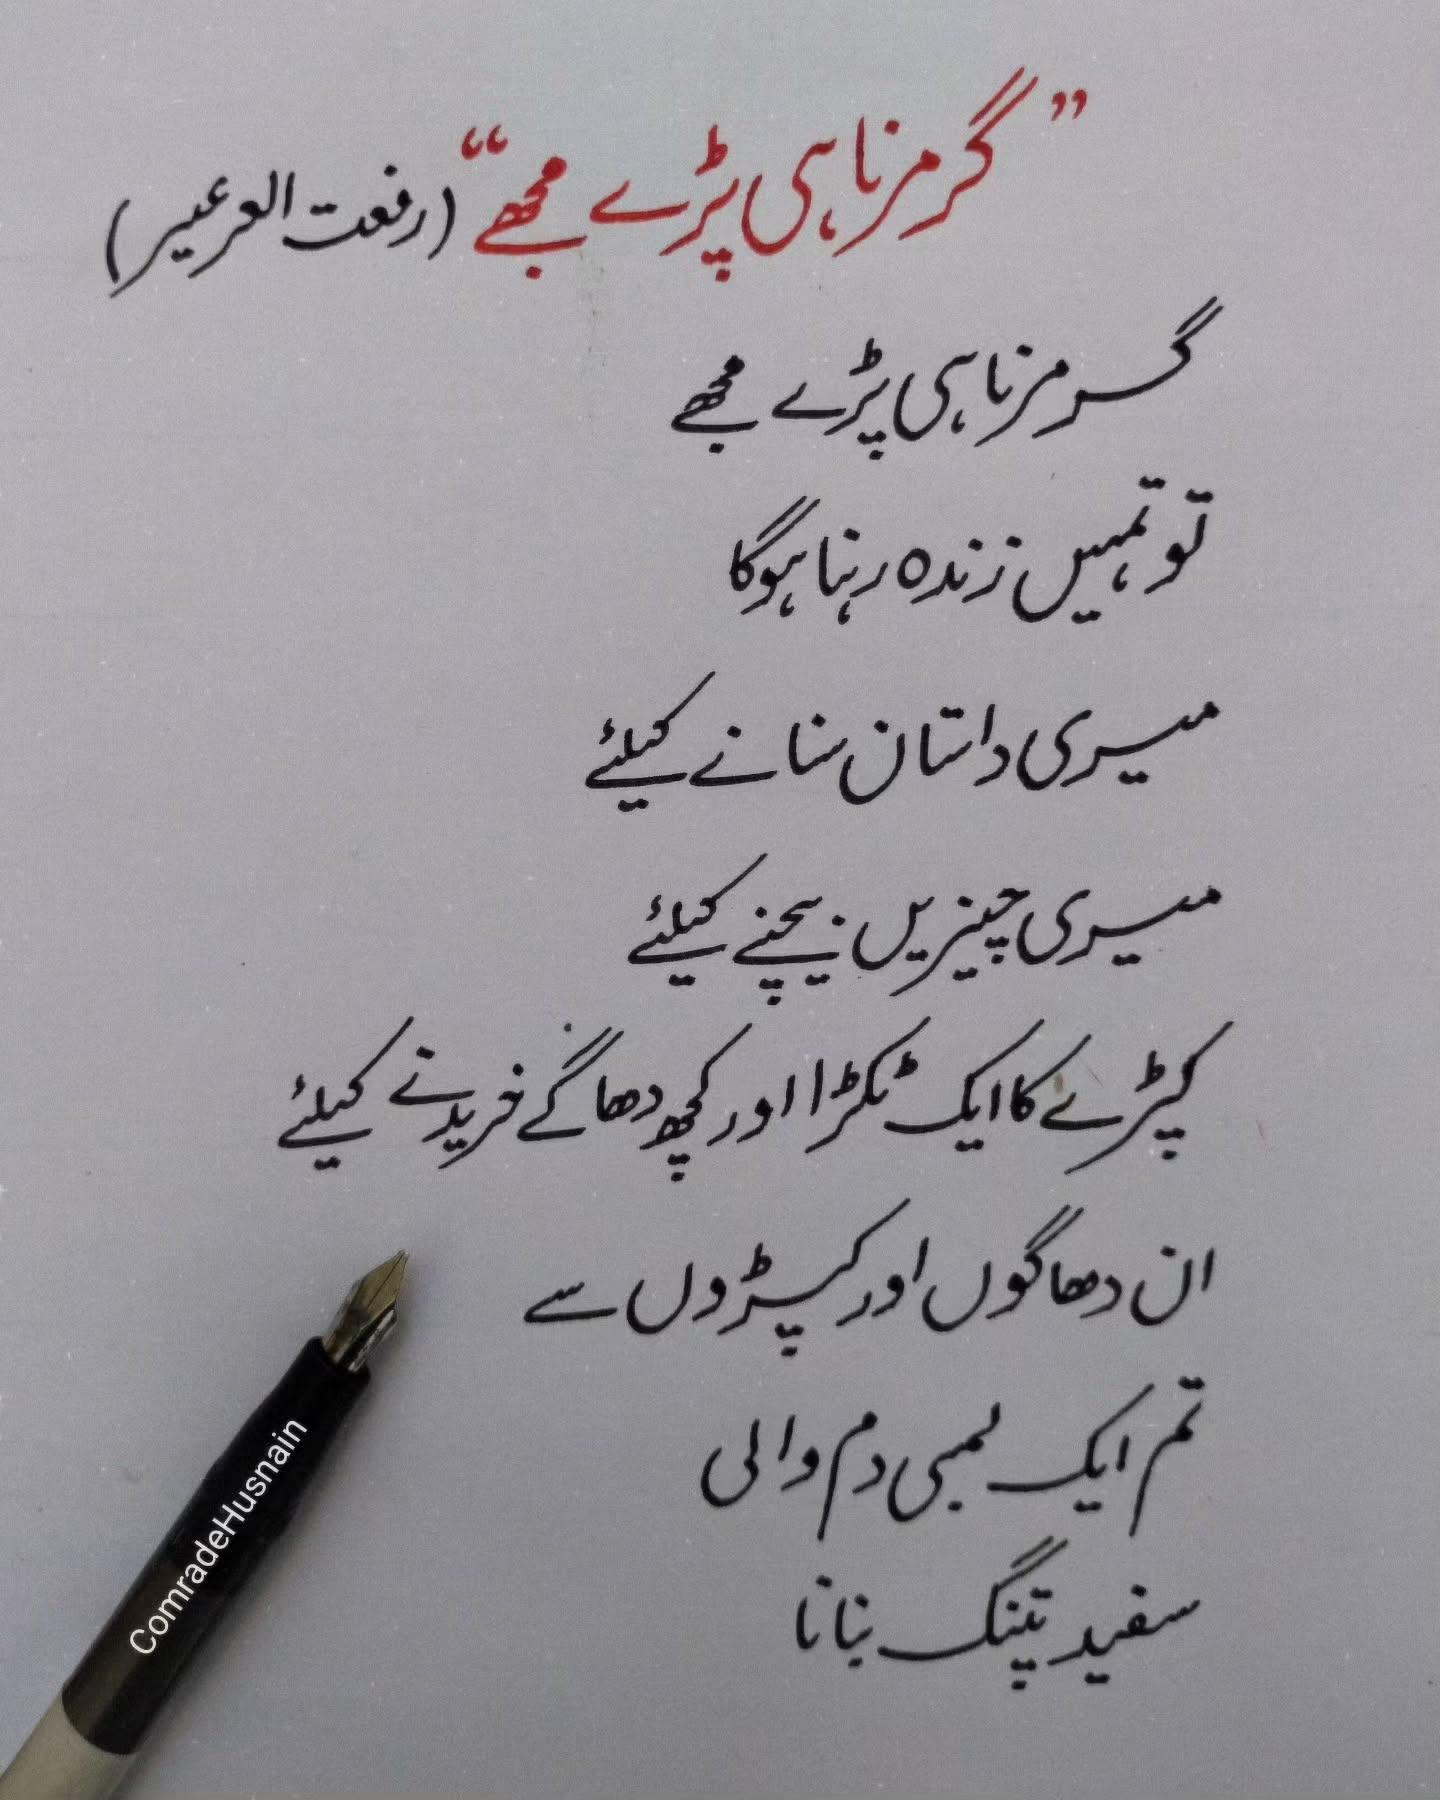 ”گر مرنا ہی پڑے مجھے“ (رفعت العرعیر)
گر مرنا ہی پڑے مجھے
تو تمہیں زندہ رہنا ہوگا
میری داستان سنانے کیلئے
میری چیزیں بیچنے کیلئے
کپڑے کا ایک ٹکڑا اور کچھ دھاگے خریدنے کیلئے
ان دھاگوں اور کپڑوں سے
تم ایک لمبی دم والی
سفید پتنگ بنانا
ComradeHusnain